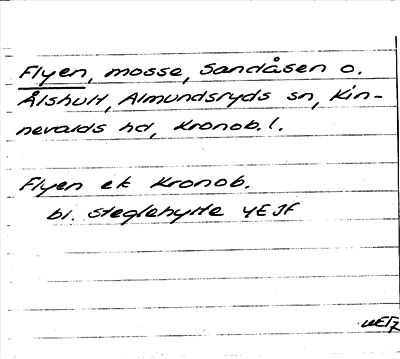 Flyen, mosse, Sandåsen o.
Ålshult, Almundsryds sn, Kin-
nevalds hd, Kronob. l.
Flyen ek Kronob.
bl. Steglehylte 4E JF